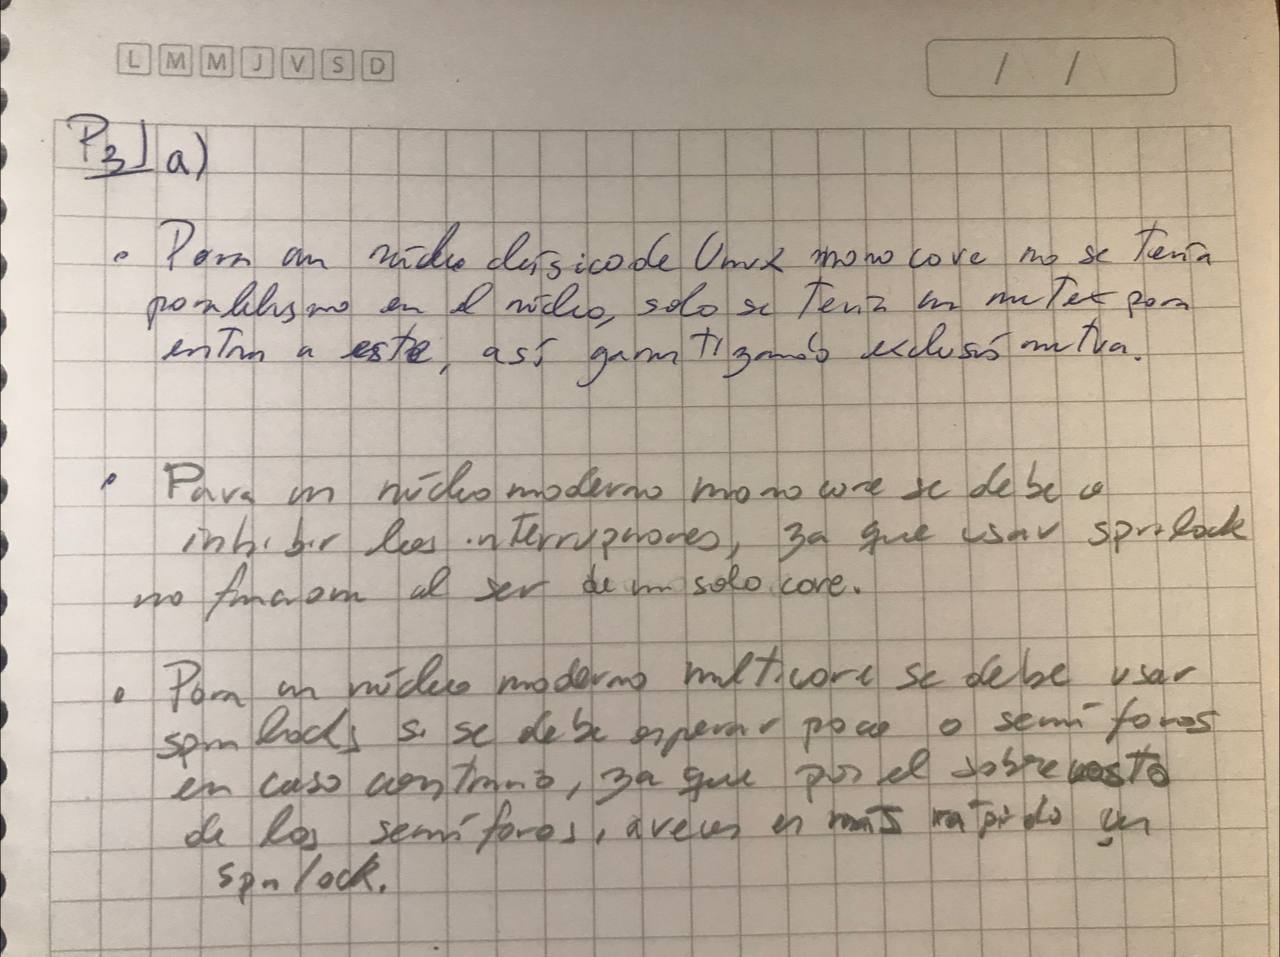 L M M J V S D
/ /
P3] a)
• Para un núcleo clásico de Unix mono core no se tenía
paralelismo en el núcleo, solo se tenía un mutex para
entrar a este, así garantizando exclusión mutua.
• Para un núcleo moderno mono core se debe
inhibir las interrupciones, ya que usar spinlock
no funciona al ser de un solo core.
• Para un núcleo moderno multicore se debe usar
spinlocks si se debe esperar poco o semáforos
en caso contrario, ya que por el sobrecosto
de los semáforos, a veces es más rápido un
spinlock.